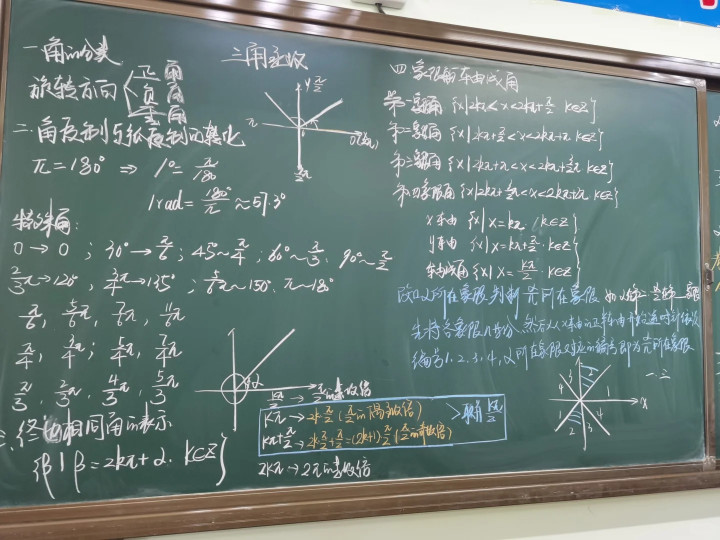 一 角的分类
旋转方向 正角
负角
零角
二、角度制与弧度制的转化
π=180° ⇒ 1°=π/180
1rad=180°/π≈57.3°
特殊角:
0→0; 30°→π/6; 45°~π/4; 60°~π/3. 90°~π/2
2/3π→120°, 3/4π→135°; 5/6π~150. π~180
π/6, 5/6π, 7/6π, 11/6π
π/4, 3/4π; 5/4π, 7/4π
π/3, 2/3π, 4/3π, 5/3π
三、终边相同角的表示
{β|β=2kπ+α. k∈Z}
三角函数
y π/2
π
0(2π)
3/2π
α
kπ/2→π/2的整数倍
kπ→2k·π/2(π/2的偶数倍)
kπ+π/2→2k·π/2+π/2=(2k+1)·π/2(π/2的奇数倍)
kπ/2
2kπ→2π的整数倍
四 象限角 轴线角
第一象限角 {x|2kπ<x<2kπ+π/2 k∈Z}
第二象限角 {x|2kπ+π/2<x<2kπ+π k∈Z}
第三象限角 {x|2kπ+π<x<2kπ+3/2π k∈Z}
第四象限角 {x|2kπ+3/2π<x<2kπ+2π k∈Z}
x轴 {x|x=kπ, k∈Z}
y轴 {x|x=kπ+π/2. k∈Z}
轴线角 {x|x=kπ/2 k∈Z}
所在象限,判断 所在象限
先将各象限 等分,然后从x轴的正半轴开始逆时针依次
编号1.2.3.4,α所在象限对应的编号即为 所在象限
一.三
4 3 2 1 x
1 2 3 4